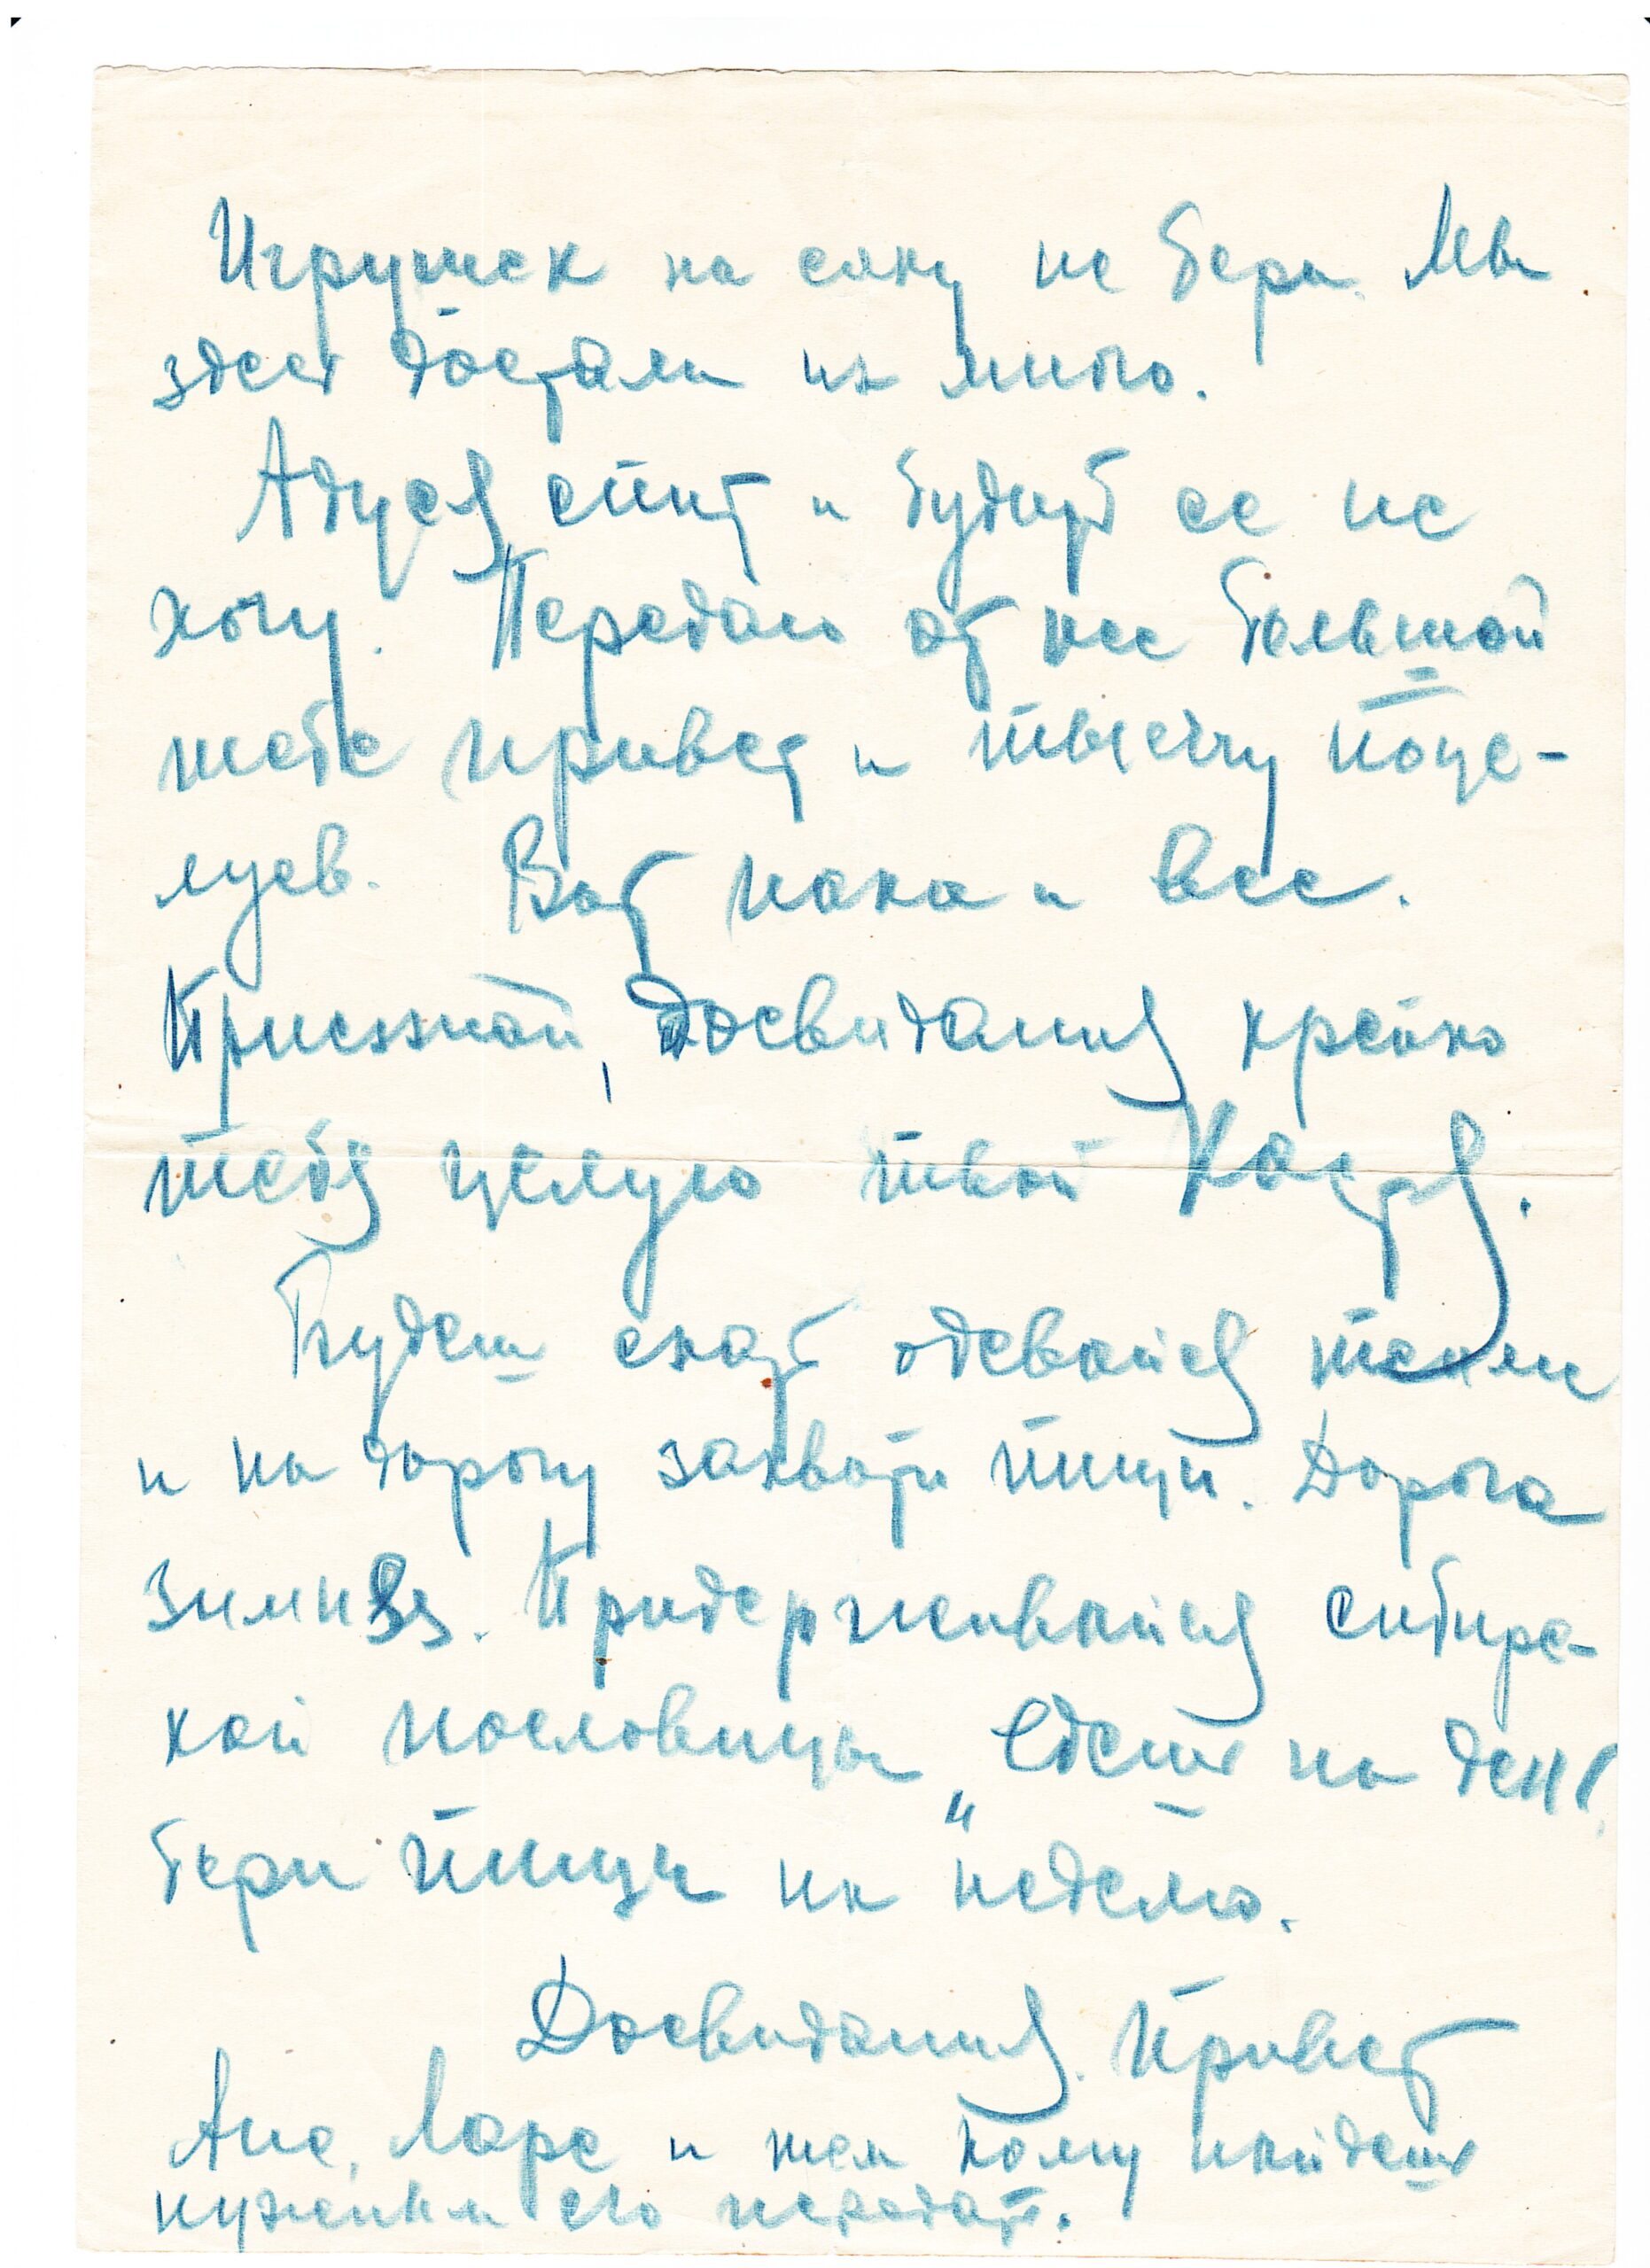 Игрушек на елку не бери. Мы
здесь достали их много.
Адуся спит и будить ее не
хочу. Передаю от нее большой
тебе привет и тысячу поце-
луев. Вот пока и все.
Приезжай, досвидания крепко
тебя целую твой Костя.
Будеш ехать одевайся тепле
и на дорогу захвати пищи. Дорога
зимняя. Придерживайся сибирс-
кой пословицы „Едешь на день
бери пищи на неделю.
Досвидания. Привет
Ане, Ларе и тем кому найдешь
нужным его передать.